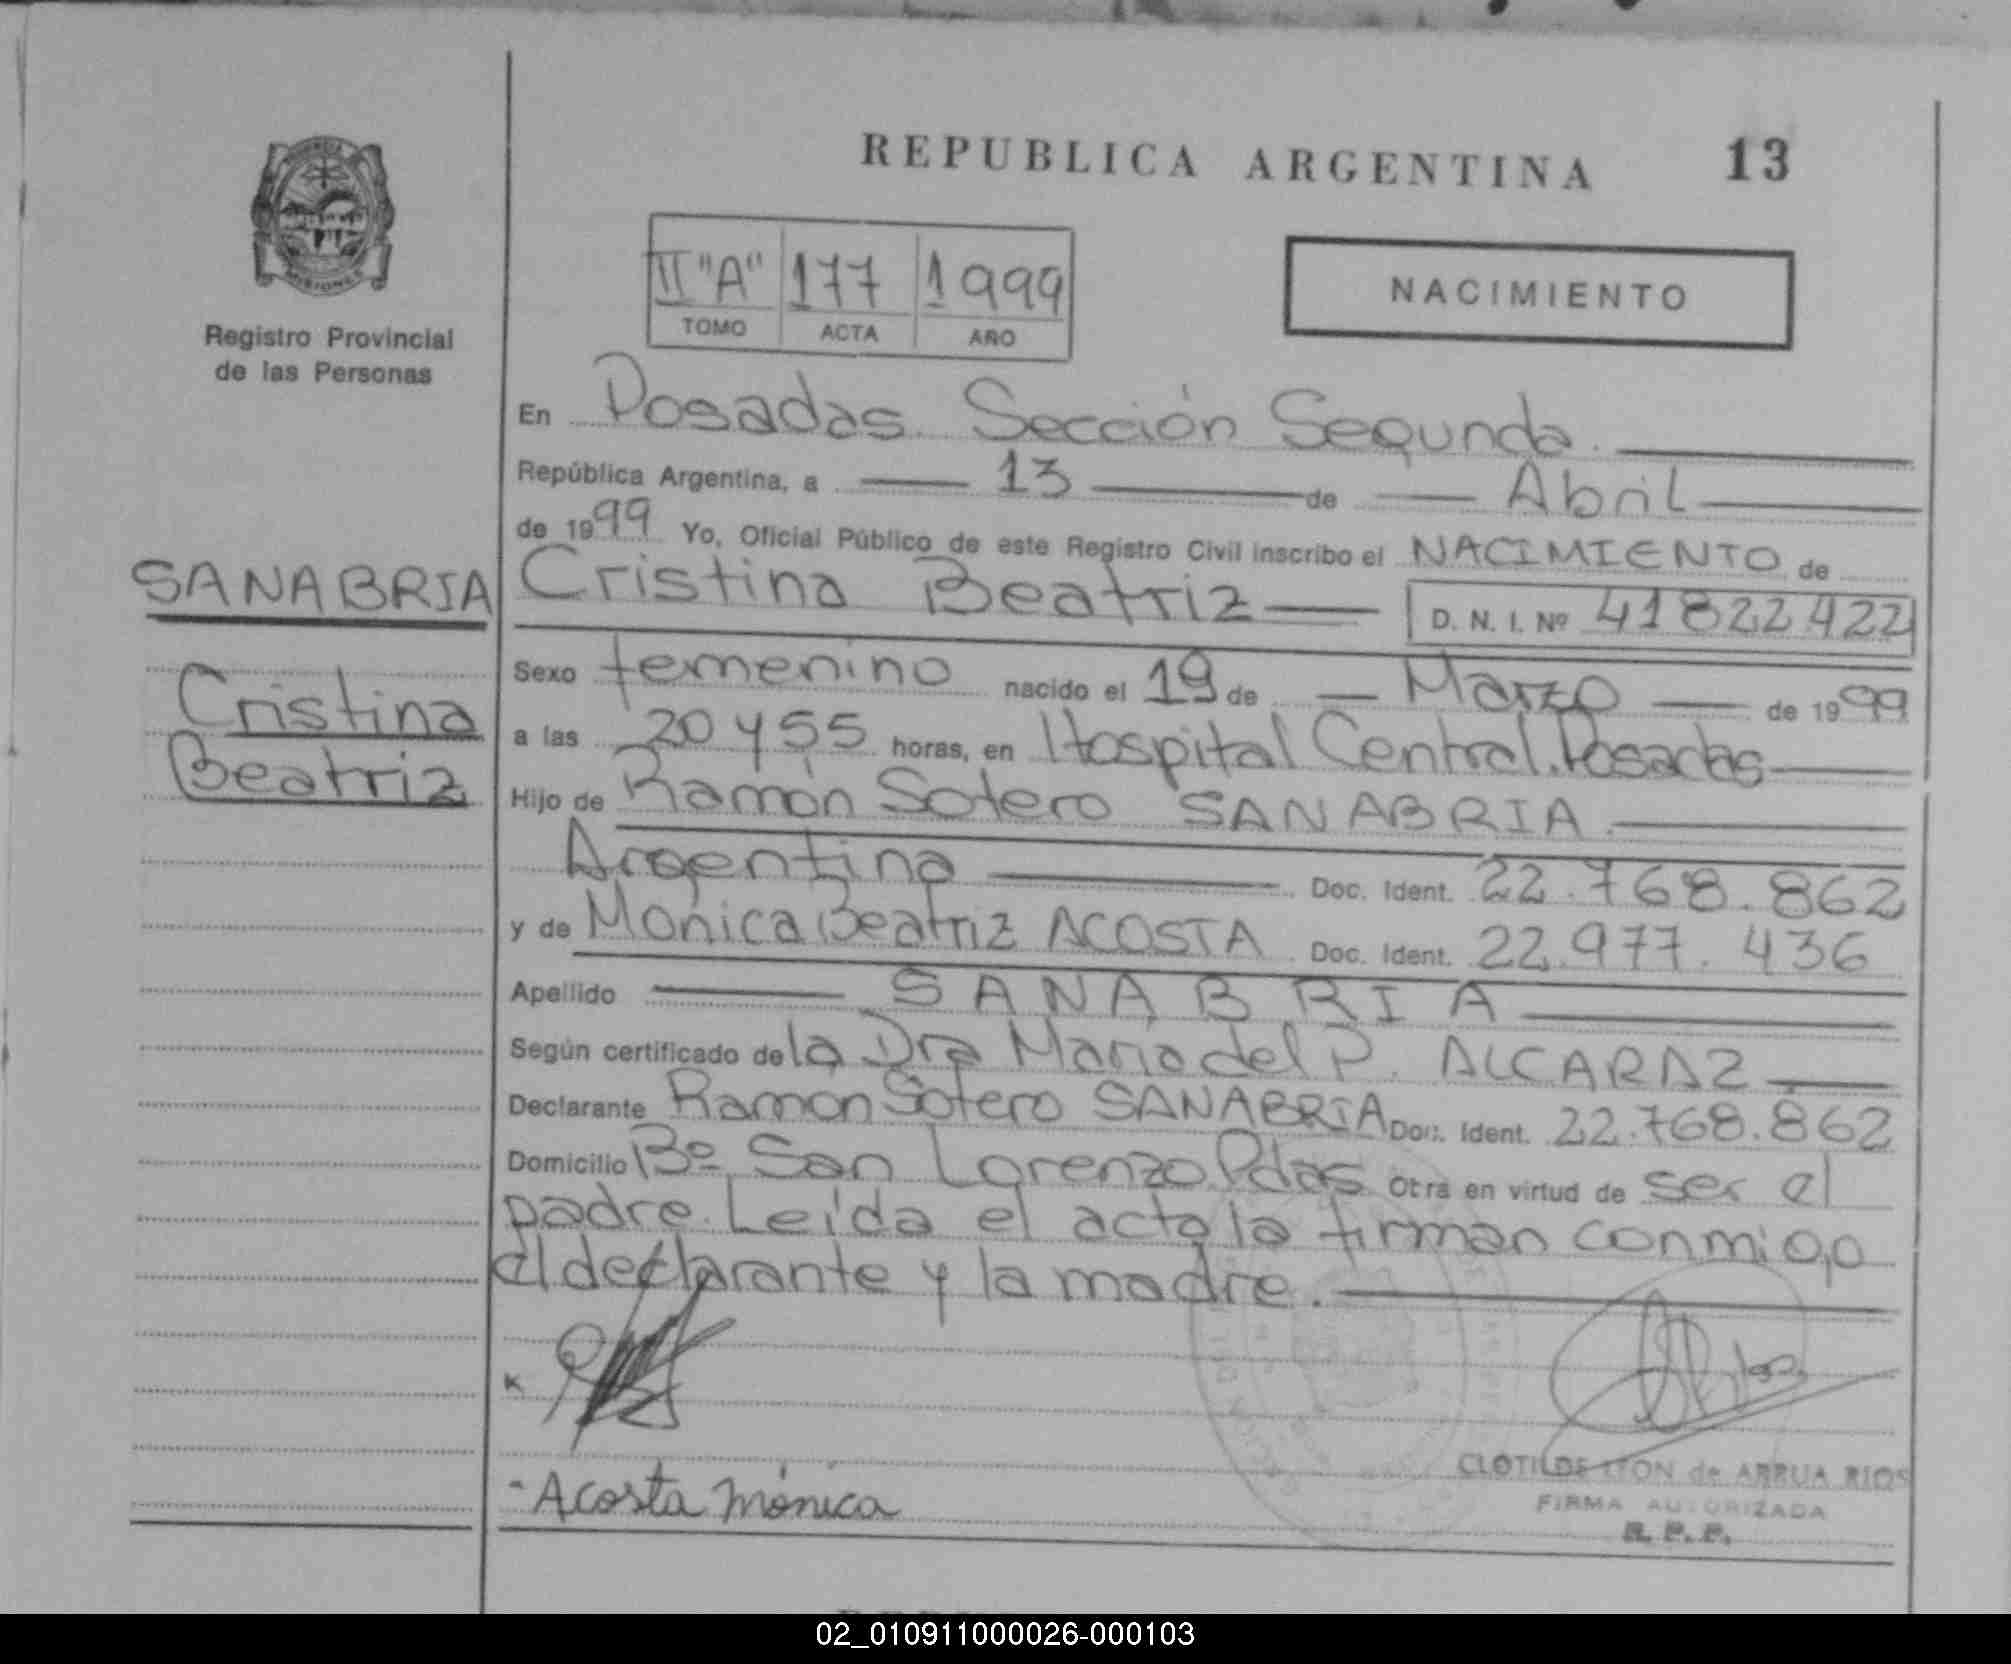 REPUBLICA ARGENTINA 13
II "A" 177 1999
TOMO ACTA AÑO
NACIMIENTO
MISIONES
Registro Provincial
de las Personas
SANABRIA
Cristina
Beatriz
En Posadas Sección Segunda.
República Argentina, a 13 de Abril
de 1999 Yo, Oficial Público de este Registro Civil inscribo el NACIMIENTO de
Cristina Beatriz D. N. I. Nº 41822422
Sexo femenino nacido el 19 de Marzo de 1999
a las 20 y 55 horas, en Hospital Central. Posadas
Hijo de Ramón Sotero SANABRIA.
Argentina Doc. Ident. 22.768.862
y de Mónica Beatriz ACOSTA Doc. Ident. 22.977.436
Apellido SANABRIA
Según certificado de la Dra Maria del P. ALCARAZ
Declarante Ramón Sotero SANABRIA Doc. Ident. 22.768.862
Domicilio Bº San Lorenzo Pdas Otra en virtud de ser el
padre. Leída el acta la firman conmigo
el declarante y la madre.
Acosta Mónica
CLOTILDE de ARRUA RIOS
FIRMA AUTORIZADA
R. P. P.
02_010911000026-000103